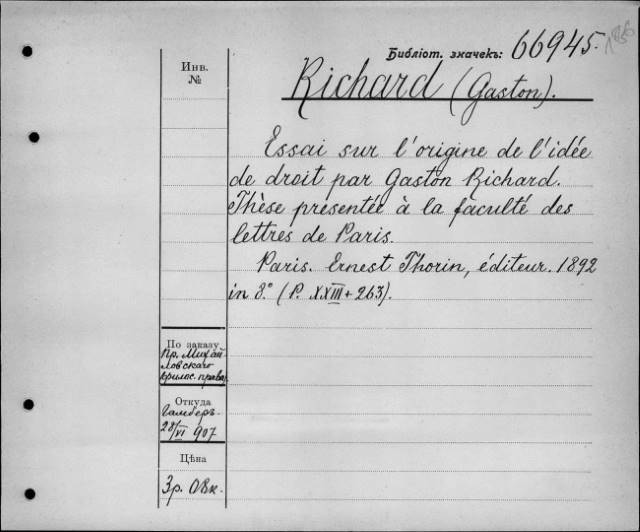 Библіот. значекъ: 66945.
Инв.
№
Richard (Gaston).
Essai sur l'origine de l'idée
de droit par Gaston Richard.
Thèse présentée à la faculté des
lettres de Paris.
Paris. Ernest Thorin, éditeur. 1892
in 8.° (P. XXIII + 263).
По заказу
Пр. Михай-
ловскаго
права
Откуда
Гамберъ
28/VI 907
Цѣна
3р. 08к.